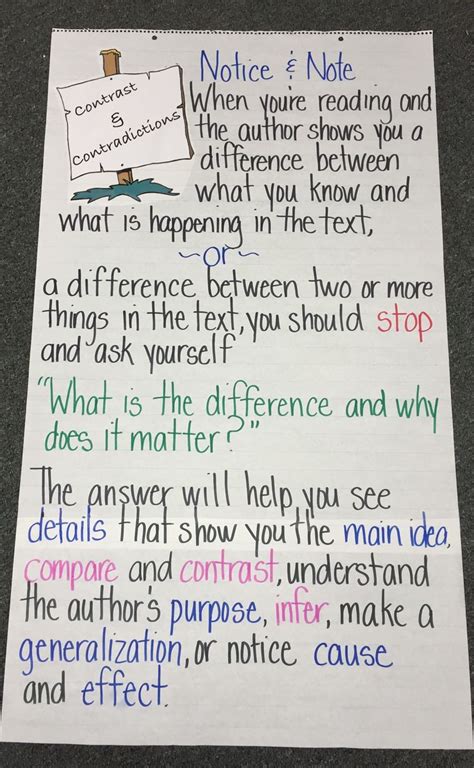 Notice & Note
Contrast
&
Contradictions
When you're reading and
the author shows you a
difference between
what you know and
what is happening in the text,
~or~
a difference between two or more
things in the text, you should stop
and ask yourself
"What is the difference and why
does it matter?"
The answer will help you see
details that show you the main idea,
compare and contrast, understand
the author's purpose, infer, make a
generalization, or notice cause
and effect.